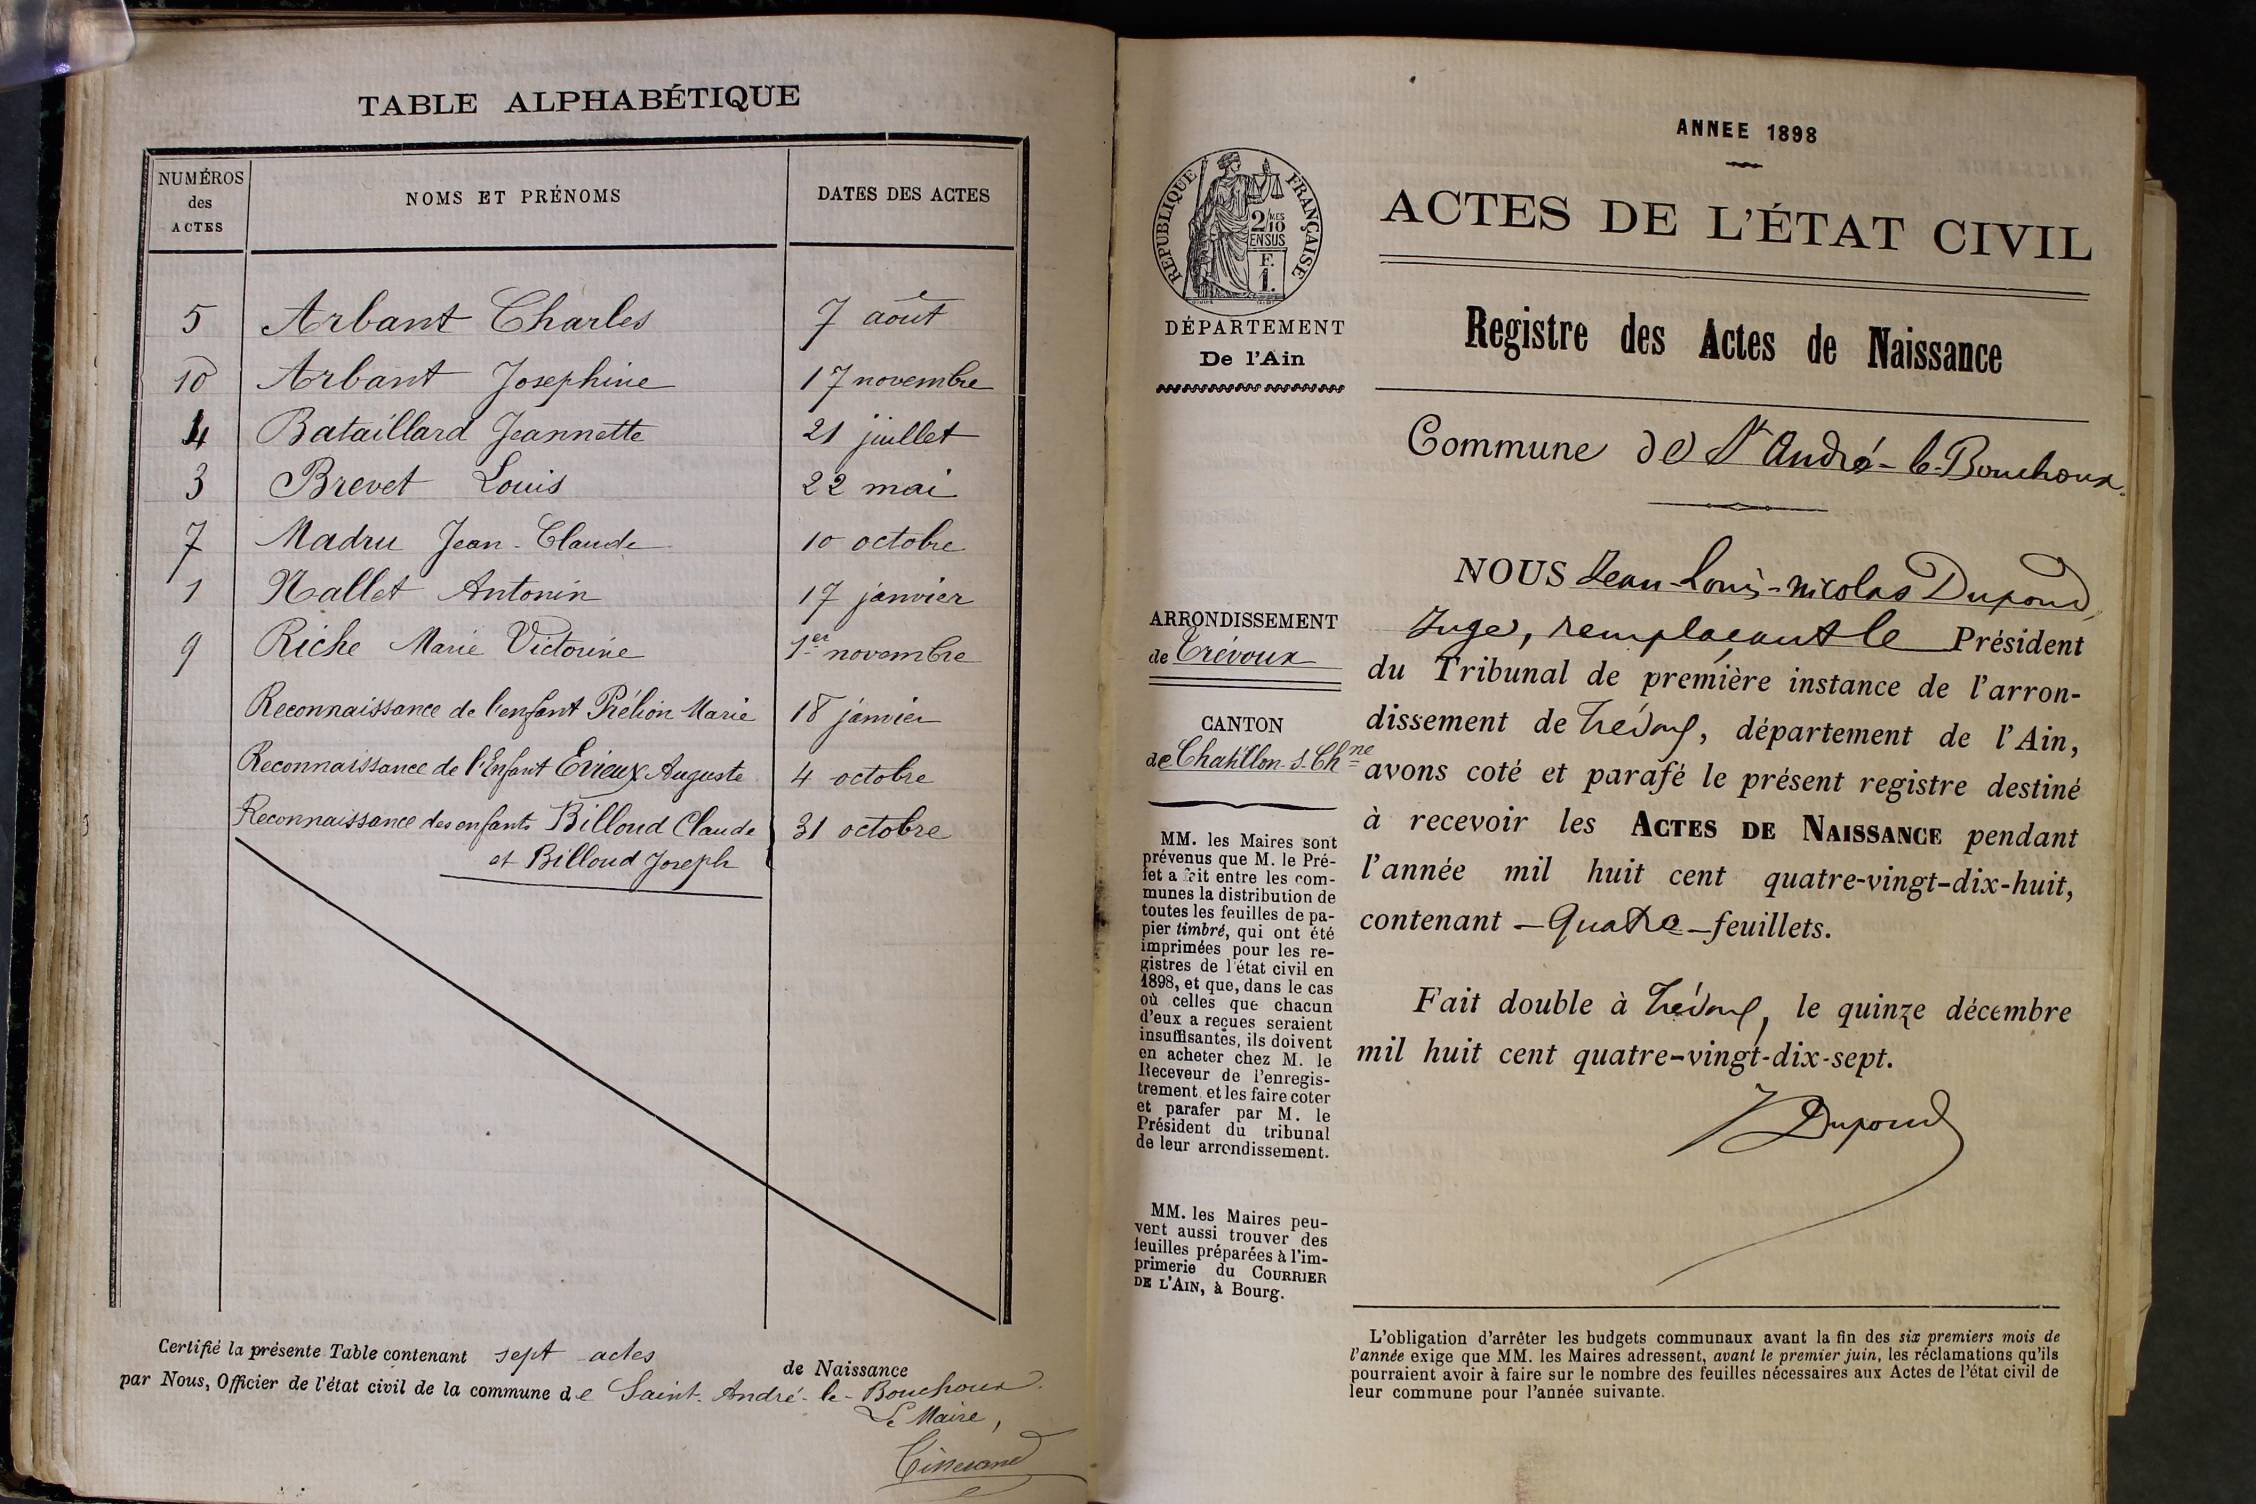 TABLE ALPHABÉTIQUE
NUMÉROS des ACTES NOMS ET PRÉNOMS DATES DES ACTES
5 Arbant Charles 7 août
10 Arbant Josephine 17 novembre
4 Bataillard Jeannette 21 juillet
3 Brevet Louis 22 mai
7 Madru Jean-Claude 10 octobre
1 Nallet Antonin 17 janvier
9 Riche Marie Victorine 1er novembre
Reconnaissance de l'enfant Prélion Marie 18 janvier
Reconnaissance de l'Enfant Evieux Auguste 4 octobre
Reconnaissance des enfants Billoud Claude 31 octobre
et Billoud Joseph
Certifié la présente Table contenant sept actes de Naissance
par Nous, Officier de l'état civil de la commune de Saint-André-le-Bouchoux.
Le Maire,
ANNEE 1898
RÉPUBLIQUE FRANÇAISE
2/10MES
EN SUS
F.
1.
DÉPARTEMENT
De l'Ain
ARRONDISSEMENT
de Trévoux
CANTON
de Chatillon-s-Chne
MM. les Maires sont
prévenus que M. le Pré-
fet a fait entre les com-
munes la distribution de
toutes les feuilles de pa-
pier timbré, qui ont été
imprimées pour les re-
gistres de l'état civil en
1898, et que, dans le cas
où celles que chacun
d'eux a reçues seraient
insuffisantes, ils doivent
en acheter chez M. le
Receveur de l'enregis-
trement et les faire coter
et parafer par M. le
Président du tribunal
de leur arrondissement.
MM. les Maires peu-
vent aussi trouver des
feuilles préparées à l'im-
primerie du COURRIER
DE L'AIN, à Bourg.
ACTES DE L'ÉTAT CIVIL
Registre des Actes de Naissance
Commune de St André-le-Bouchoux.
NOUS Jean-Louis-Nicolas Dupond,
Juge, remplaçant le Président
du Tribunal de première instance de l'arron-
dissement de Trévoux, département de l'Ain,
avons coté et parafé le présent registre destiné
à recevoir les ACTES DE NAISSANCE pendant
l'année mil huit cent quatre-vingt-dix-huit,
contenant - Quatre - feuillets.
Fait double à Trévoux, le quinze décembre
mil huit cent quatre-vingt-dix-sept.
Dupond
L'obligation d'arrêter les budgets communaux avant la fin des six premiers mois de
l'année exige que MM. les Maires adressent, avant le premier juin, les réclamations qu'ils
pourraient avoir à faire sur le nombre des feuilles nécessaires aux Actes de l'état civil de
leur commune pour l'année suivante.